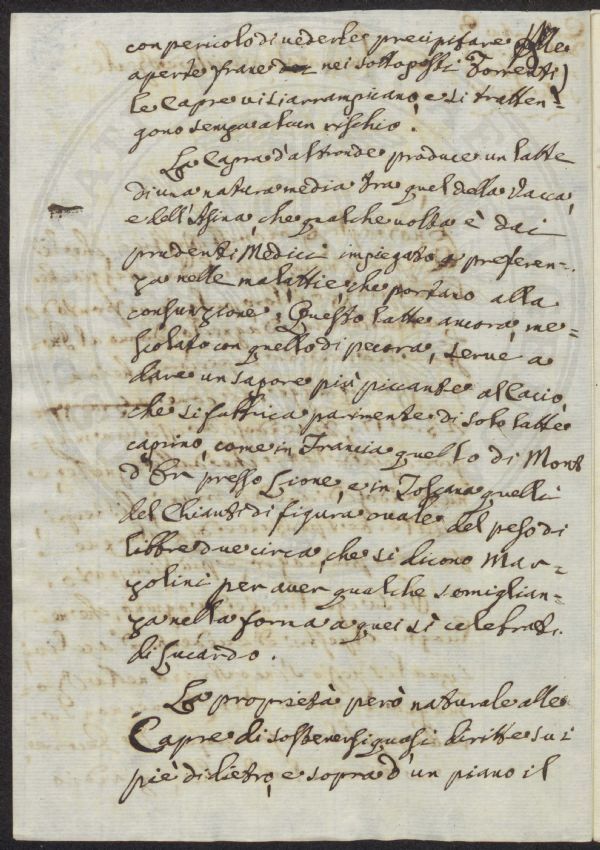 con pericolo di vederle precipitare dalle
aperte frane nei sottoposti Torrenti)
le Capre vi si arrampicano, e si tratten=
gono senza alcun rischio.
La Capra d'altronde produce un latte
di una natura media tra quel della Vacca,
e dell'Asina, che qualche volta è dai
prudenti Medici impiegato a preferen=
za nelle malattie che portano alla
consunzione. Questo latte ancora me=
scolato con quello di pecora, serve a
dare un sapore più piccante al Cacio,
che si fabbrica parimente di solo latte
caprino, come in Francia quello di Mont
d'Or presso Lione, e in Toscana quelli
del Chianti di figura ovale del peso di
libbre due circa, che si dicono Mar=
zolini per aver qualche somiglian=
za nella forma a quei sì celebrati
di Lucardo.
La proprietà però naturale alle
Capre di sostenersi quasi diritte sui
piè di dietro, e sopra d'un piano il